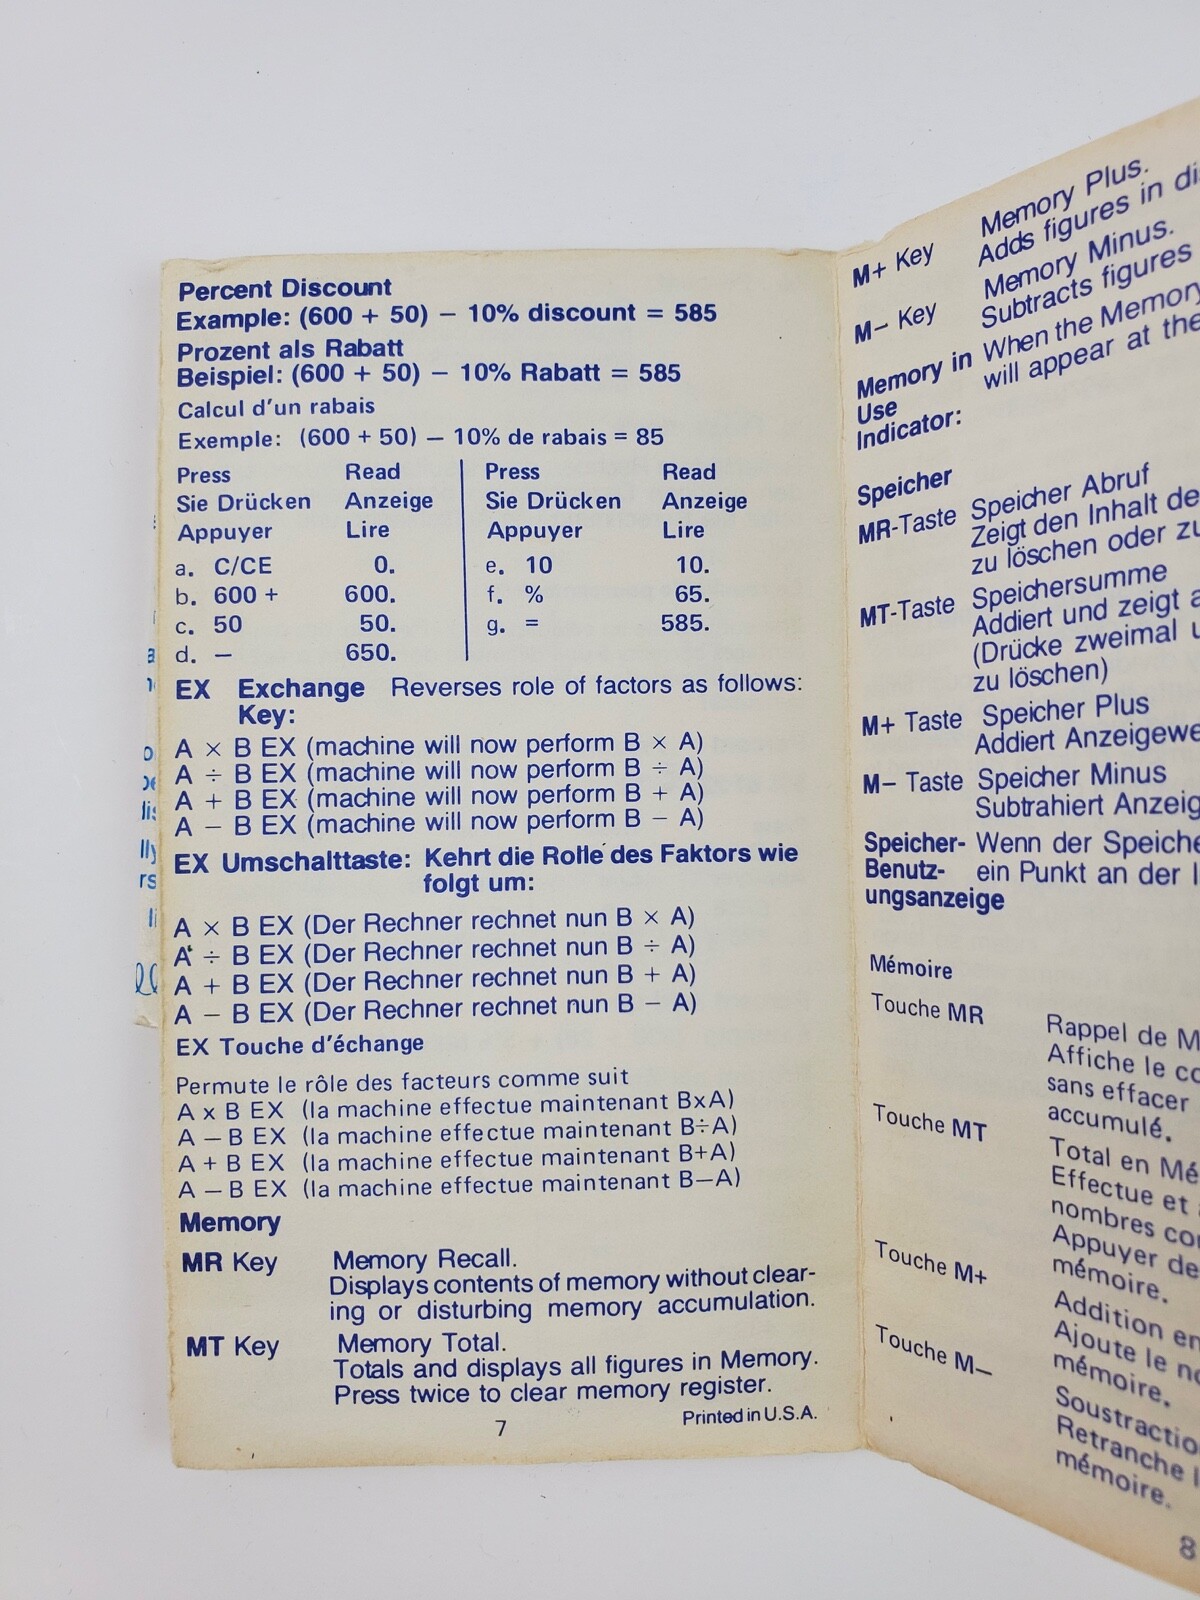 Percent Discount
Example: (600 + 50) — 10% discount = 585
Prozent als Rabatt
Beispiel: (600 + 50) — 10% Rabatt = 585
Calcul d'un rabais
Exemple: (600 + 50) — 10% de rabais = 85
Press Read Press Read
Sie Drücken Anzeige Sie Drücken Anzeige
Appuyer Lire Appuyer Lire
a. C/CE 0. e. 10 10.
b. 600 + 600. f. % 65.
c. 50 50. g. = 585.
d. — 650.
EX Exchange Reverses role of factors as follows:
Key:
A × B EX (machine will now perform B × A)
A ÷ B EX (machine will now perform B ÷ A)
A + B EX (machine will now perform B + A)
A — B EX (machine will now perform B — A)
EX Umschalttaste: Kehrt die Rolle des Faktors wie
folgt um:
A × B EX (Der Rechner rechnet nun B × A)
A ÷ B EX (Der Rechner rechnet nun B ÷ A)
A + B EX (Der Rechner rechnet nun B + A)
A — B EX (Der Rechner rechnet nun B — A)
EX Touche d'échange
Permute le rôle des facteurs comme suit
A x B EX (la machine effectue maintenant BxA)
A — B EX (la machine effectue maintenant B÷A)
A + B EX (la machine effectue maintenant B+A)
A — B EX (la machine effectue maintenant B—A)
Memory
MR Key Memory Recall.
Displays contents of memory without clear-
ing or disturbing memory accumulation.
MT Key Memory Total.
Totals and displays all figures in Memory.
Press twice to clear memory register.
7 Printed in U.S.A.
Memory Plus.
M+ Key Adds figures in
Memory Minus.
M— Key Subtracts figures
Memory in When the Memory
Use will appear at the
Indicator:
Speicher
MR-Taste Speicher Abruf
Zeigt den Inhalt
zu löschen oder
MT-Taste Speichersumme
Addiert und zeigt
(Drücke zweimal
zu löschen)
M+ Taste Speicher Plus
Addiert
M— Taste Speicher Minus
Subtrahiert
Speicher- Wenn der
Benutz- ein Punkt an der
ungsanzeige
Mémoire
Touche MR Rappel de
Affiche le
sans effacer
accumulé.
Touche MT Total en
Effectue et
nombres
Appuyer
mémoire.
Touche M+ Addition
Ajoute le
mémoire.
Touche M—
Retranche
mémoire.
8